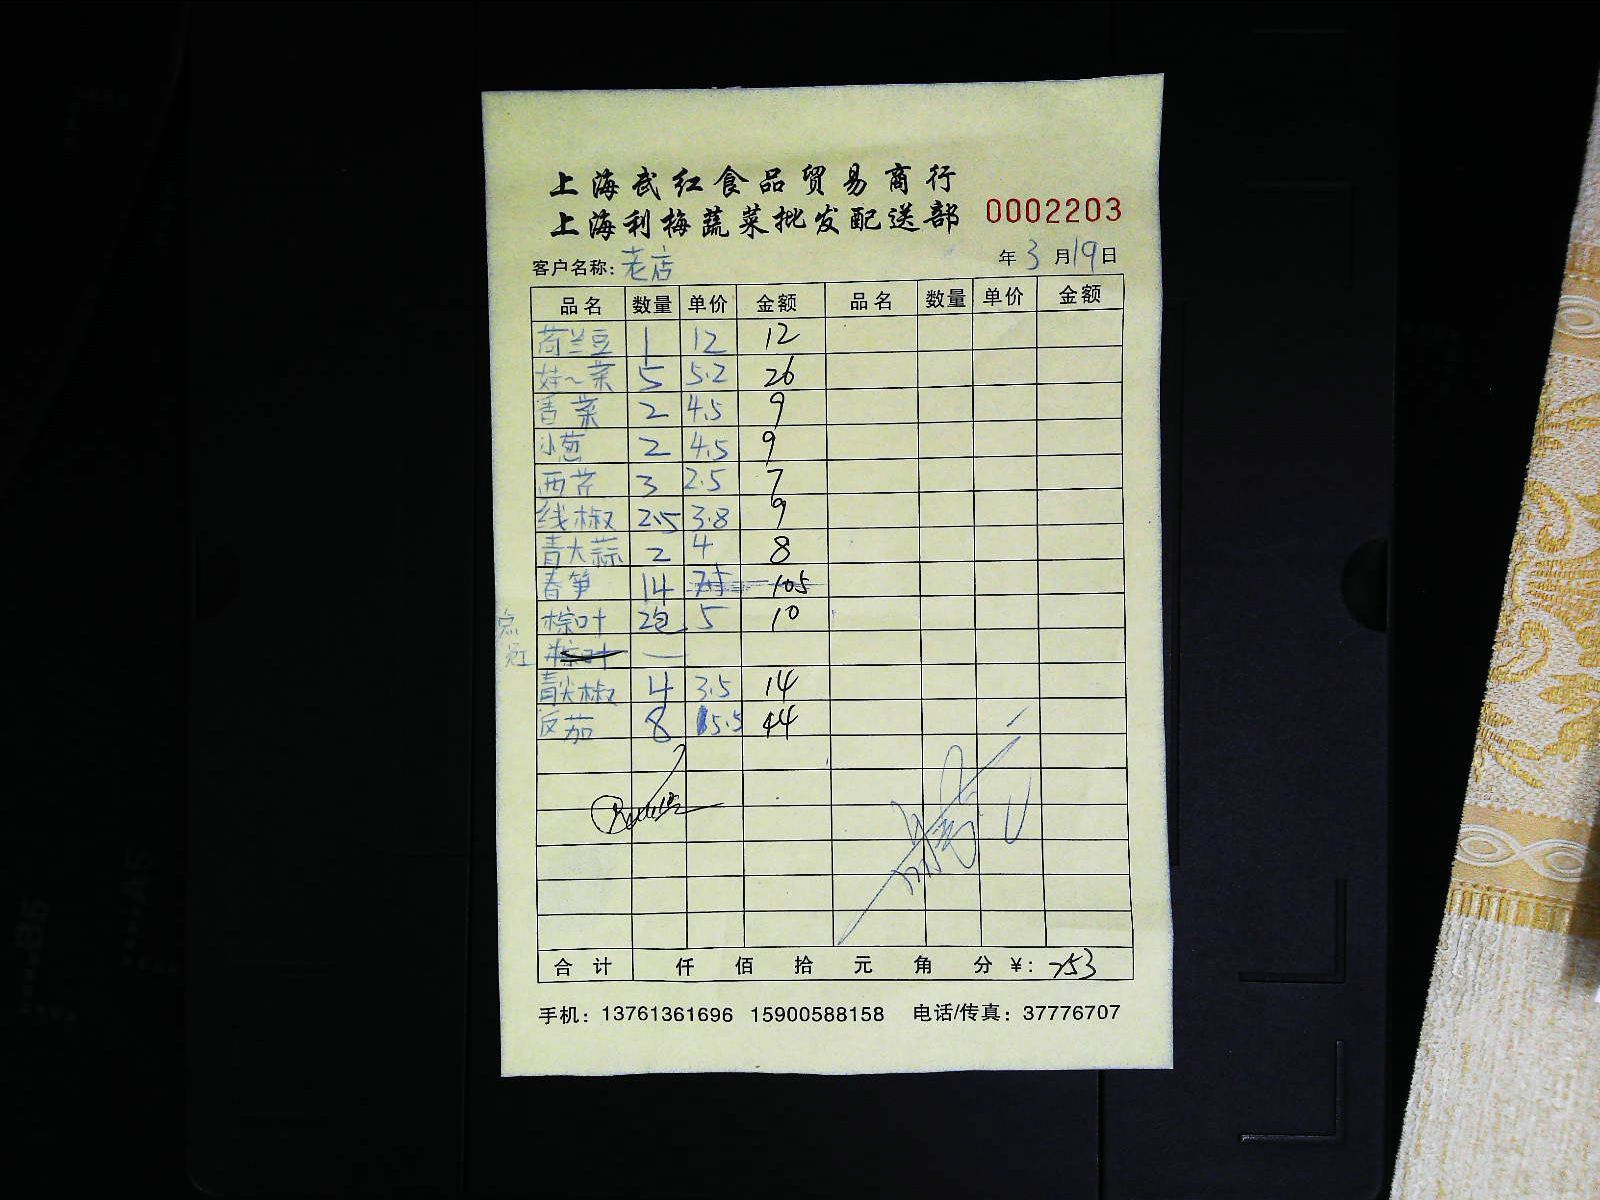 上海武红食品贸易商行
上海利梅蔬菜批发配送部 0002203
客户名称: 老店 年 3 月 19 日
品名 数量 单价 金额 品名 数量 单价 金额
荷兰豆 1 12 12
娃~菜 5 5.2 26
香菜 2 4.5 9
小葱 2 4.5 9
西芹 3 2.5 7
线椒 2.5 3.8 9
青大蒜 2 4 8
春笋 14 7.5 105
点 棕叶 2包 5 10
棕叶 —
青尖椒 4 3.5 14
反茄 8 5.5 44
合计 仟 佰 拾 元 角 分 ¥: 253
手机: 13761361696 15900588158 电话/传真: 37776707